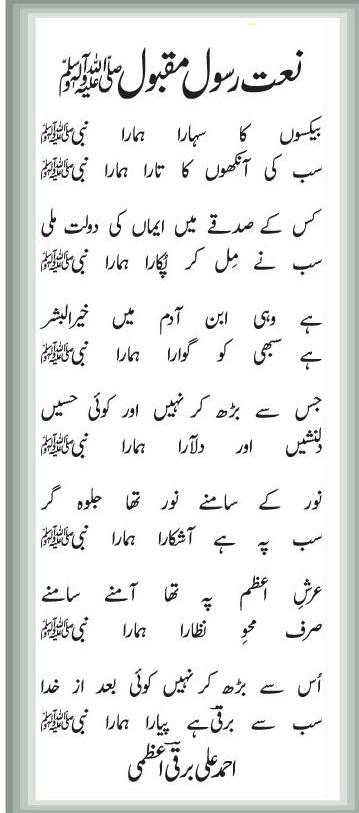 نعت رسول مقبول ﷺ
بیکسوں کا سہارا ہمارا نبی ﷺ
سب کی آنکھوں کا تارا ہمارا نبی ﷺ
کس کے صدقے میں ایماں کی دولت ملی
سب نے مِل کر پُکارا ہمارا نبی ﷺ
ہے وہی ابن آدم میں خیرالبشر
ہے سبھی کو گوارا ہمارا نبی ﷺ
جس سے بڑھ کر نہیں اور کوئی حسیں
دلنشیں اور دلآرا ہمارا نبی ﷺ
نور کے سامنے نور تھا جلوہ گر
سب پہ ہے آشکارا ہمارا نبی ﷺ
عرشِ اعظم پہ تھا آمنے سامنے
صرف محوِ نظارا ہمارا نبی ﷺ
اُس سے بڑھ کر نہیں کوئی بعد از خدا
سب سے برقیؔ ہے پیارا ہمارا نبی ﷺ
احمد علی برقیؔ اعظمی